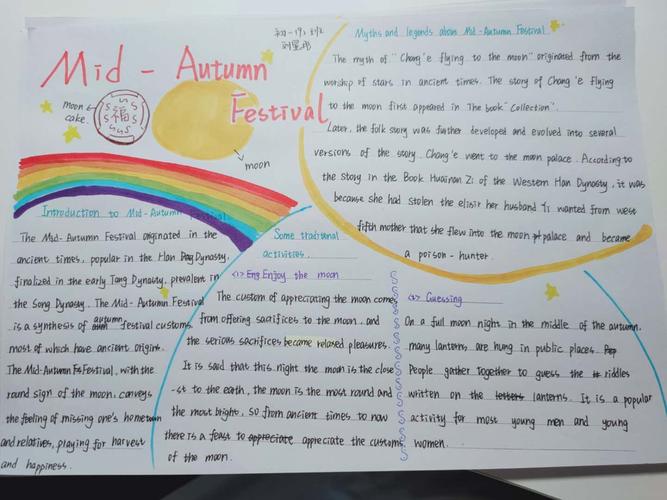 Mid - Autumn
Festival
初一.19班
moon
cake.
福
moon
Myths and legends about Mid-Autumn Festival
The myth of "Chang'e flying to the moon" originated from the
worship of stars in ancient times. The story of Chang'e flying
to the moon first appeared in The book "Collection".
Later, the folk story was further developed and evolved into several
versions of the story. Chang'e went to the moon palace. According to
the story in the Book Huainan Zi of the Western Han Dynasty, it was
because she had stolen the elixir her husband Yi wanted from west
fifth mother that she flew into the moon palace and became
a poison-hunter.
Introduction to Mid-Autumn Festival
The Mid-Autumn Festival originated in the
ancient times, popular in the Han Dynasty,
finalized in the early Tang Dynasty, prevalent in
the Song Dynasty. The Mid-Autumn Festival
is a synthesis of autumn festival customs,
most of which have ancient origins.
The Mid-Autumn Festival, with the
round sign of the moon, conveys
the feeling of missing one's hometown
and relatives, playing for harvest
and happiness.
Some traditional
activities.
<1> Enjoy the moon
The custom of appreciating the moon come
from offering sacrifices to the moon, and
the serious sacrifices became relaxed pleasures.
It is said that this night the moon is the close
-st to the earth, the moon is the most round and
the most bright, so from ancient times to now
there is a feast to appreciate appreciate the customs
of the moon.
<2> Guessing
On a full moon night in the middle of the autumn,
many lanterns are hung in public places.
People gather together to guess the riddles
written on the letters lanterns. It is a popular
activity for most young men and young
women.